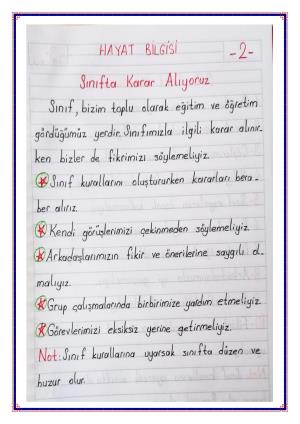 HAYAT BİLGİSİ
-2-
Sınıfta Karar Alıyoruz
Sınıf, bizim toplu olarak eğitim ve öğretim
gördüğümüz yerdir. Sınıfımızla ilgili karar alınır-
ken bizler de fikrimizi söylemeliyiz.
Sınıf kurallarını oluştururken kararları bera-
ber alırız.
Kendi görüşlerimizi çekinmeden söylemeliyiz.
Arkadaşlarımızın fikir ve önerilerine saygılı ol-
malıyız.
Grup çalışmalarında birbirimize yardım etmeliyiz.
Görevlerimizi eksiksiz yerine getirmeliyiz.
Not: Sınıf kurallarına uyarsak sınıfta düzen ve
huzur olur.